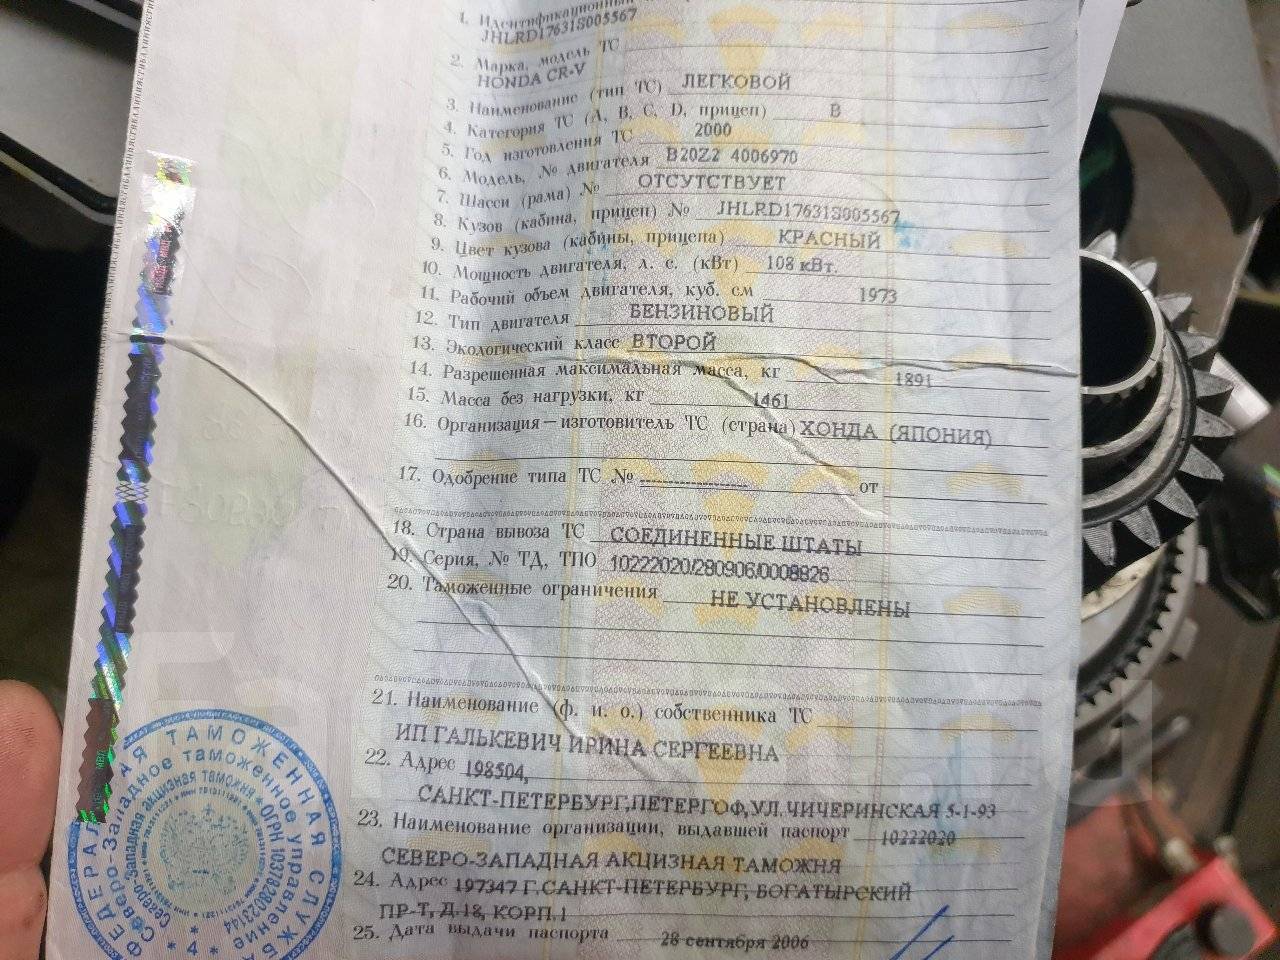 1. Идентификационный
JHLRD17631S005567
2. Марка, модель ТС
HONDA CR-V
3. Наименование (тип ТС) ЛЕГКОВОЙ
4. Категория ТС (A, B, C, D, прицеп) B
5. Год изготовления ТС 2000
6. Модель, № двигателя B20Z2 4006970
7. Шасси (рама) № ОТСУТСТВУЕТ
8. Кузов (кабина, прицеп) № JHLRD17631S005567
9. Цвет кузова (кабины, прицепа) КРАСНЫЙ
10. Мощность двигателя, л. с. (кВт) 108 кВт.
11. Рабочий объем двигателя, куб. см 1973
12. Тип двигателя БЕНЗИНОВЫЙ
13. Экологический класс ВТОРОЙ
14. Разрешенная максимальная масса, кг 1891
15. Масса без нагрузки, кг 1461
16. Организация—изготовитель ТС (страна) ХОНДА (ЯПОНИЯ)
17. Одобрение типа ТС № -------------------- от
18. Страна вывоза ТС СОЕДИНЕННЫЕ ШТАТЫ
19. Серия, № ТД, ТПО 10222020/280906/0008826
20. Таможенные ограничения НЕ УСТАНОВЛЕНЫ
21. Наименование (ф. и. о.) собственника ТС
ИП ГАЛЬКЕВИЧ ИРИНА СЕРГЕЕВНА
22. Адрес 198504,
САНКТ-ПЕТЕРБУРГ,ПЕТЕРГОФ,УЛ.ЧИЧЕРИНСКАЯ 5-1-93
23. Наименование организации, выдавшей паспорт 10222020
СЕВЕРО-ЗАПАДНАЯ АКЦИЗНАЯ ТАМОЖНЯ
24. Адрес 197347 Г.САНКТ-ПЕТЕРБУРГ, БОГАТЫРСКИЙ
ПР-Т, Д.18, КОРП.1
25. Дата выдачи паспорта 28 сентября 2006
ФЕДЕРАЛЬНАЯ ТАМОЖЕННАЯ СЛУЖБА
Северо-Западное таможенное управление
Северо-Западная акцизная таможня * ОГРН 1037828023144
* 4 *